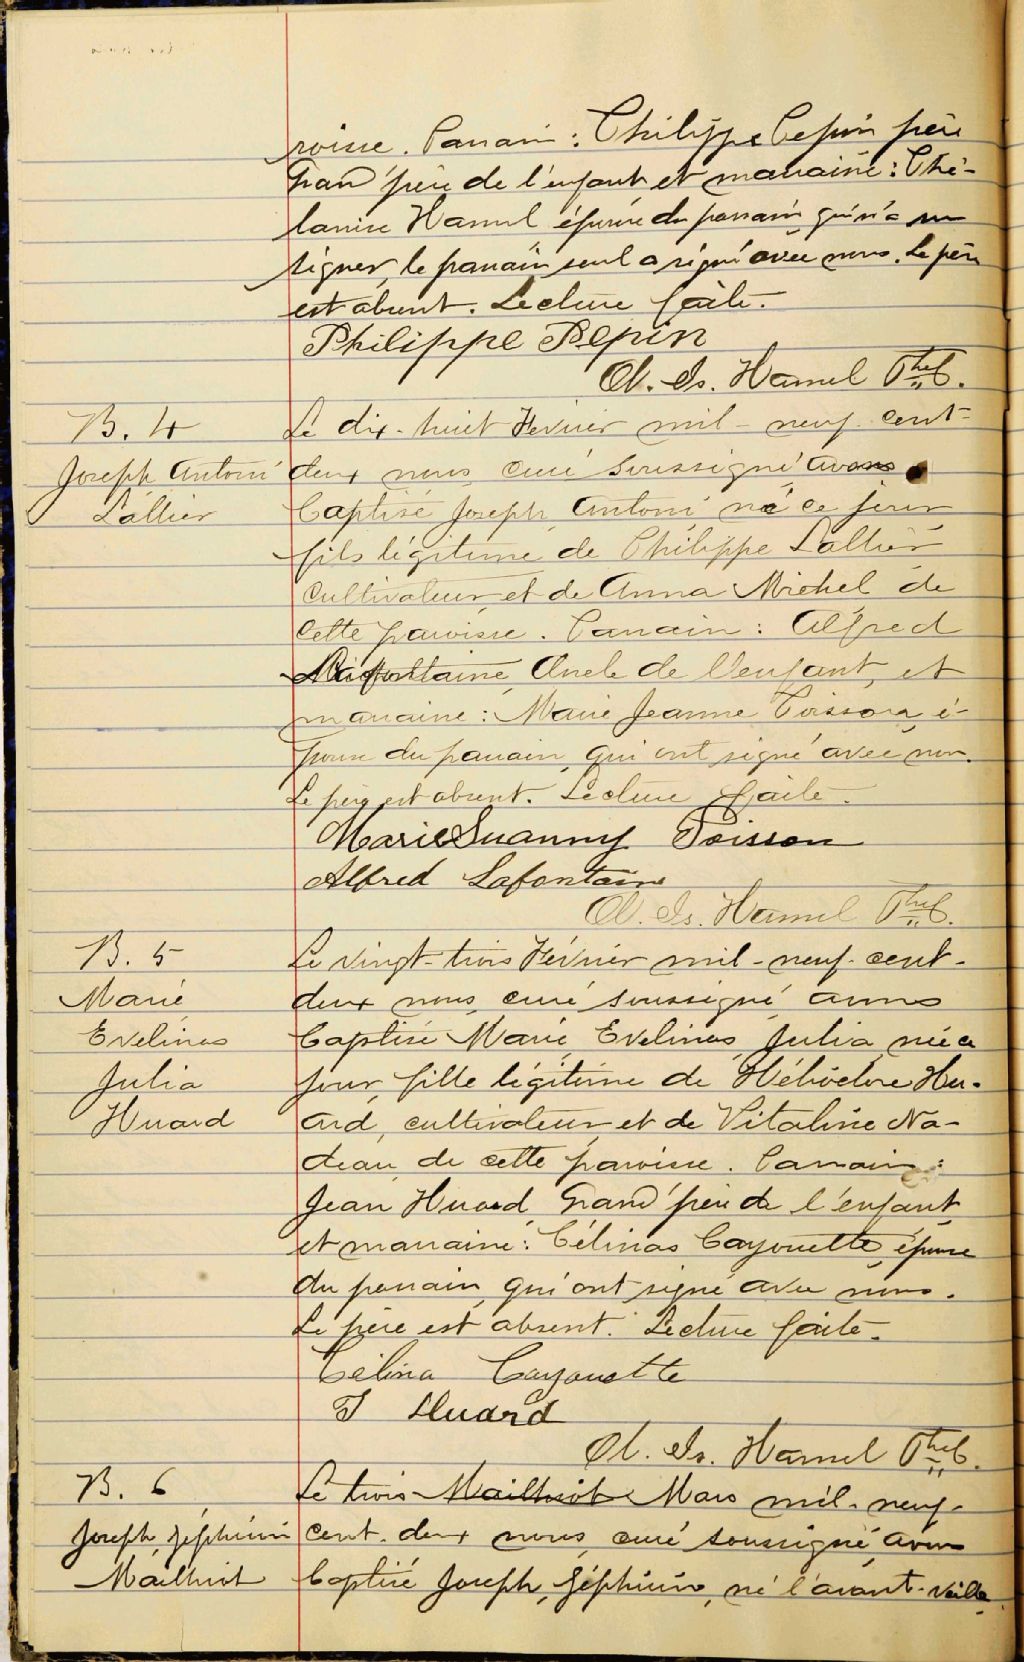 roisse. Parrain : Philippe Pepin père
Grand'père de l'enfant et marraine : Thé-
lanise Hamel épouse du parrain qui n'a su
signer, le parrain seul a signé avec nous. Le père
est absent. Lecture faite.
Philippe Pepin
Ol. Is. Hamel Ptre C.
B. 4
Joseph Antoni
Lallier
Le dix-huit Fevrier mil-neuf-cent-
deux nous, curé soussigné avons
baptisé Joseph, Antoni né ce jour,
fils légitime de Philippe Lallier
cultivateur et de Anna Michel de
cette paroisse. Parrain : Alfred
Lafontaine, Oncle de l'enfant, et
marraine : Marie Jeanne Poisson, é-
pouse du parrain, qui ont signé avec nous.
Le père est absent. Lecture faite.
Marie Poisson
Alfred Lafontaine
Ol. Is. Hamel Ptre C.
B. 5
Marie
Evelinas
Julia
Huard
Le vingt-trois Février mil-neuf-cent-
deux nous, curé soussigné avons
baptisé Marie, Evelinas, Julia, née ce
jour, fille légitime de Héliodore Hu-
ard, cultivateur, et de Vitaline Na-
deau, de cette paroisse. Parrain :
Jean Huard Grand'père de l'enfant,
et marraine : Célinas Cayouette, épouse
du parrain, qui ont signé avec nous.
Le père est absent. Lecture faite.
Célina Cayouette
J Huard
Ol. Is. Hamel Ptre C.
B. 6
Joseph, Zéphirin
Mailhiot
Le trois Mailhiot Mars mil-neuf-
cent-deux nous, curé soussigné avons
baptisé Joseph, Zéphirin, né l'avant-veille,